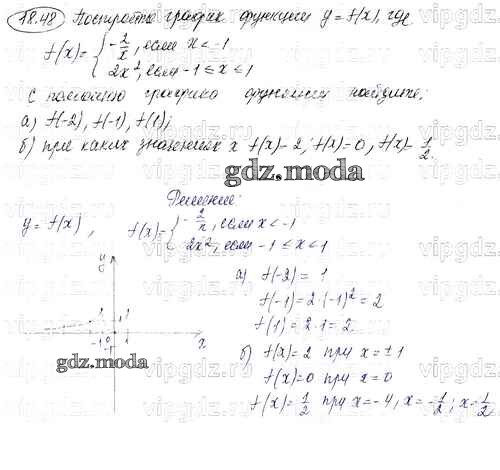 18.48 Построить график функции y = f(x), где
f(x) = { -2/x, если x < -1
2x², если -1 ≤ x ≤ 1
С помощью графика функции найдите:
а) f(-2), f(-1), f(1);
б) при каких значениях x f(x) = 2; f(x) = 0, f(x) = 1/2.
gdz.moda
Решение:
y = f(x), f(x) = { -2/x, если x < -1
2x², если -1 ≤ x ≤ 1
y
а) f(-2) = 1
f(-1) = 2·(-1)² = 2
1 1
f(1) = 2·1 = 2
-1 0 1 x
б) f(x) = 2 при x = ±1
gdz.moda
f(x) = 0 при x = 0
f(x) = 1/2 при x = -4, x = -1/2; x = 1/2